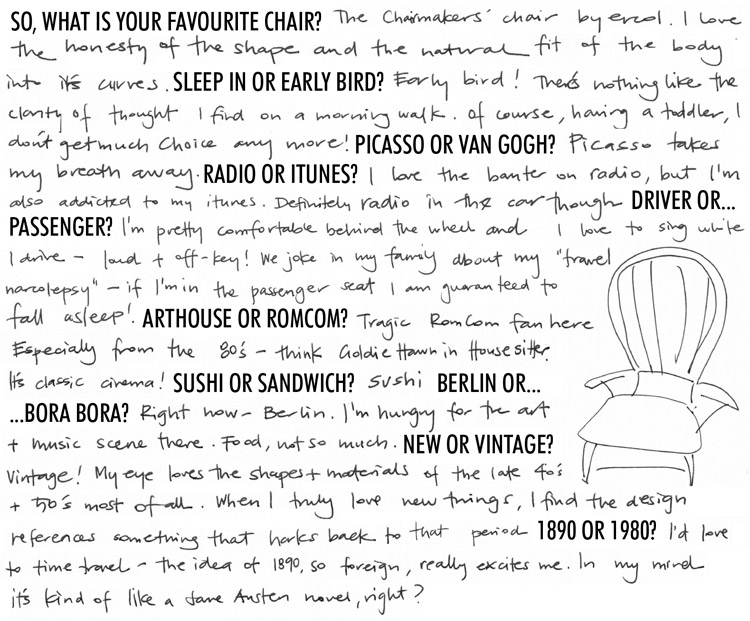 SO, WHAT IS YOUR FAVOURITE CHAIR? The Chairmakers' chair by ercol. I love
the honesty of the shape and the natural fit of the body
into it's curves. SLEEP IN OR EARLY BIRD? Early bird! There's nothing like the
clarity of thought I find on a morning walk. Of course, having a toddler, I
don't get much choice any more! PICASSO OR VAN GOGH? Picasso takes
my breath away. RADIO OR ITUNES? I love the banter on radio, but I'm
also addicted to my itunes. Definitely radio in the car though DRIVER OR...
PASSENGER? I'm pretty comfortable behind the wheel and I love to sing while
I drive - loud + off-key! We joke in my family about my "travel
narcolepsy" - if I'm in the passenger seat I am guaranteed to
fall asleep! ARTHOUSE OR ROMCOM? Tragic RomCom fan here
Especially from the 80's - think Goldie Hawn in Housesitter.
It's classic cinema! SUSHI OR SANDWICH? Sushi BERLIN OR...
...BORA BORA? Right now - Berlin. I'm hungry for the art
+ music scene there. Food, not so much. NEW OR VINTAGE?
Vintage! My eye loves the shapes + materials of the late 40's
+ 50's most of all. When I truly love new things, I find the design
references something that harks back to that period 1890 OR 1980? I'd love
to time travel - the idea of 1890, so foreign, really excites me. In my mind
it's kind of like a Jane Austen novel, right?